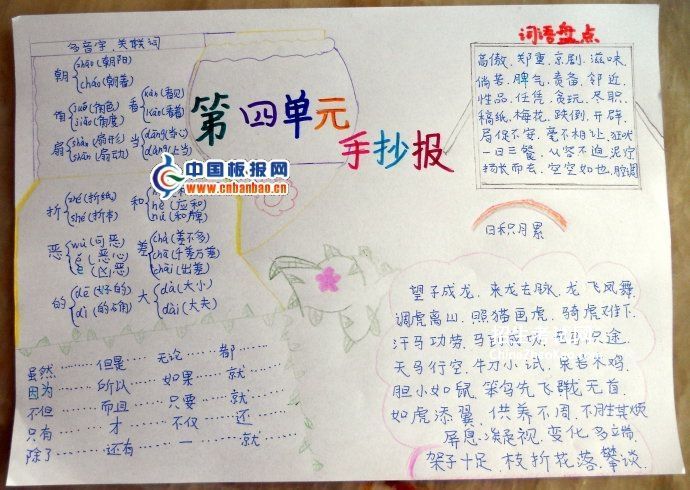 多音字、关联词
朝 zhāo(朝阳) cháo(朝着)
角 jué(角色) jiǎo(角度)
看 kàn(看见) kān(看着)
扇 shàn(扇形) shān(扇动)
当 dāng(当心) dàng(上当)
第四单元
手抄报
中国板报网
www.cnbanbao.cn
折 zhé(折纸) shé(折本)
和 hè(应和) hú(和牌)
恶 wù(可恶) ě(恶心) è(凶恶)
差 chà(差不多) chā(千差万差) chāi(出差)
的 dē(好的) dì(的角)
大 dà(大小) dài(大夫)
虽然……但是……无论……都
因为……所以……如果……就
不但……而且……只要……就
只有……才……不仅……还
除了……还有……一……就
词语盘点
高傲、郑重、京剧、滋味、
倘若、脾气、责备、邻近、
性品、任凭、贪玩、尽职、
稿纸、梅花、跌倒、开辟、
局促不安、毫不相让、狂吠
一日三餐、从容不迫、泥泞
扬长而去、空空如也、腔调
日积月累
望子成龙、来龙去脉、龙飞凤舞、
调虎离山、照猫画虎、骑虎难下、
汗马功劳、马到成功、老马识途、
天马行空、牛刀小试、呆若木鸡、
胆小如鼠、笨鸟先飞、群龙无首、
如虎添翼、供养不周、不胜其烦
屏息凝视、变化多端、
架子十足、枝折花落、攀谈、